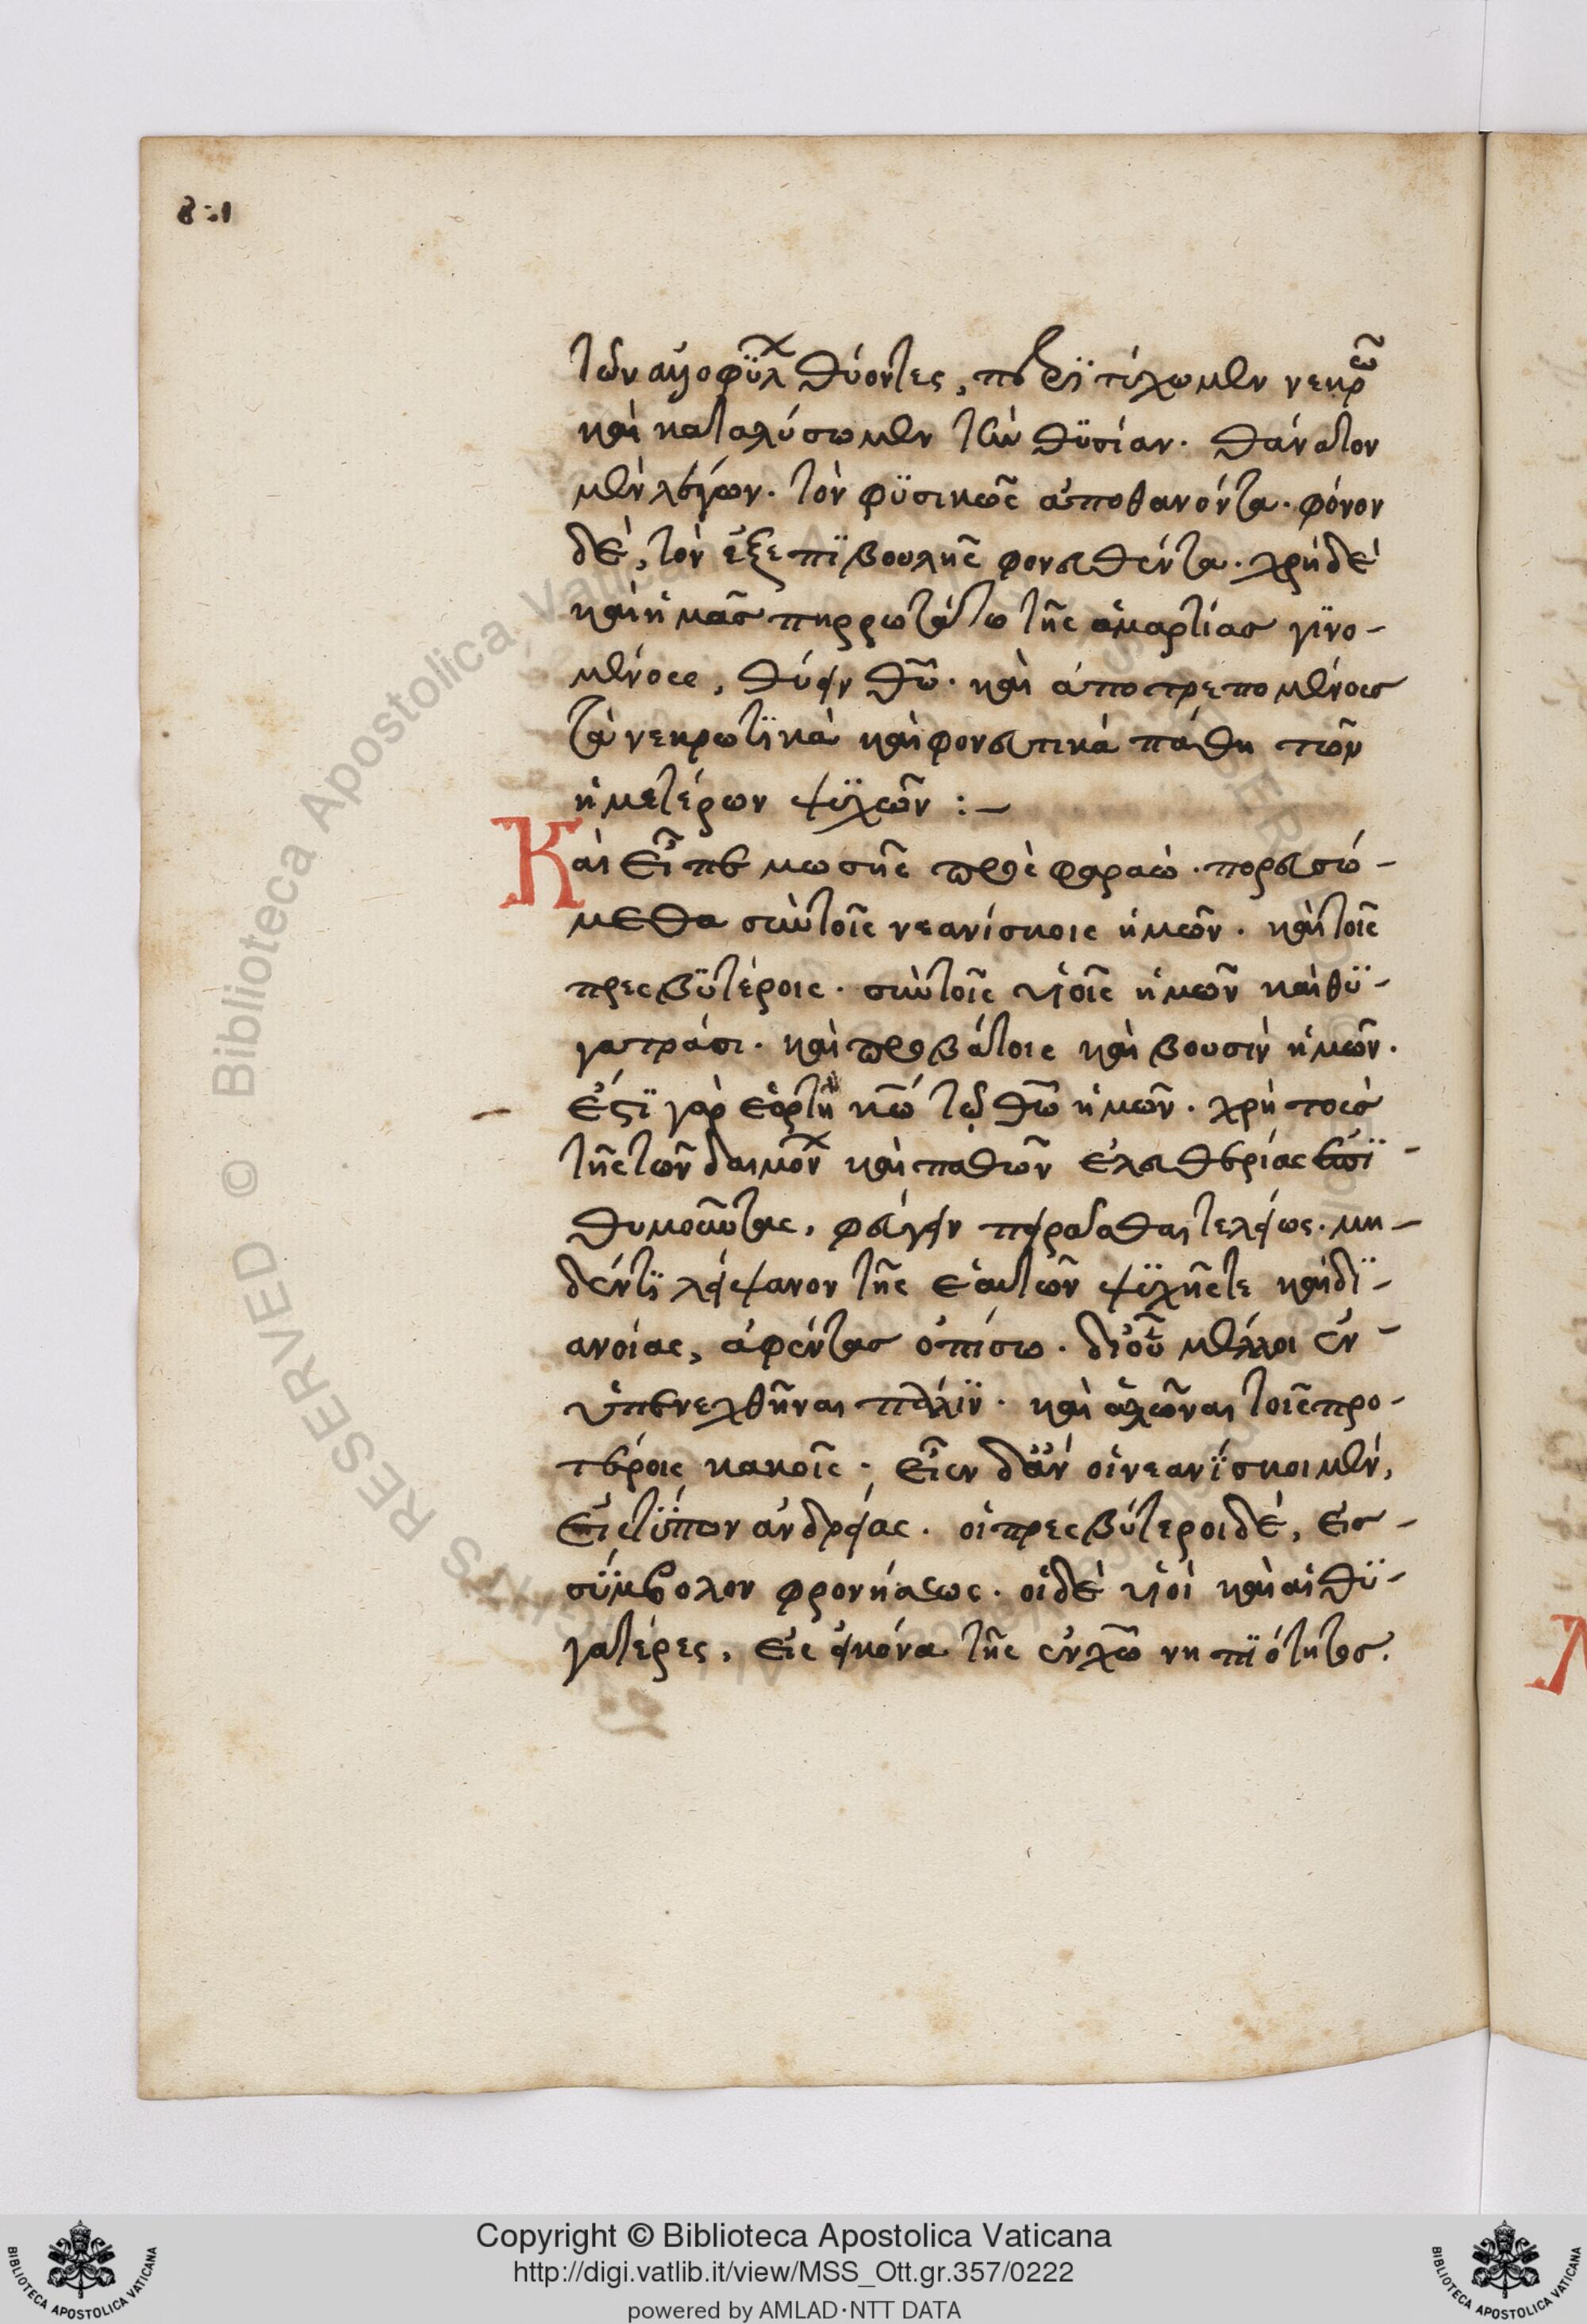 τῶν ἀλλοφύλ θύοντες, ποτε ἐπιτύχωμεν νεκρῶ
καὶ καταλύσωμεν τὴν θϋσίαν. θάνατον
μὲν λέγων. τὸν φϋσικῶς ἀποθανόντα. φόνον
δὲ, τὸν ἐξεπϊβουλῆς φονευθέντα. χρὴ δὲ
καὶ ἡμᾶς πηρρωτάτω τῆς ἁμαρτίας γϊνο-
μένους, θύειν θῶ. καὶ ἀποτρεπομένους
τὰ νεκρωτϊκὰ καὶ φονευτικὰ πάθη τῶν
ἡμετέρων ψϋχῶν :-
Καὶ εἶπε μωσῆς πρὸς φαραὼ. πορευσό-
μεθα σὺν τοῖς νεανίσκοις ἡμῶν. καὶ τοῖς
πρεσβϋτέροις. σὺν τοῖς υἱοῖς ἡμῶν καὶ θϋ-
γατράσι. καὶ προβάτοις καὶ βουσὶν ἡμῶν.
ἔστϊ γὰρ ἑορτὴ κῶ τῷ θῶ ἡμῶν. χρὴ τοὺς
τῆς τῶν δαιμόν καὶ παθῶν ἐλευθερίας ἐπϊ-
θυμοῦντας, φεύγειν πειρᾶσθαι τελείως. μη-
δέν τϊ λείψανον τῆς ἑαυτῶν ψϋχῆς τε καὶ δϊ-
ανοίας, ἀφέντας ὀπίσω. δι' οὗ μέλλοιεν
ὑπενεχθῆναι πάλϊν. καὶ ἁλῶναι τοῖς προ-
τέροις κακοῖς. εἶεν δ' ἂν οἱ νεανΐσκοι μὲν,
εἰς τύπον ἀνδρείας. οἱ πρεσβύτεροι δὲ, εἰς
σύμβολον φρονήσεως. οἱ δὲ υἱοὶ καὶ αἱ θϋ-
γατέρες, εἰς εἰκόνα τῆς ἐν χῶ νηπϊότητος.
Copyright © Biblioteca Apostolica Vaticana
http://digi.vatlib.it/view/MSS_Ott.gr.357/0222
powered by AMLAD·NTT DATA